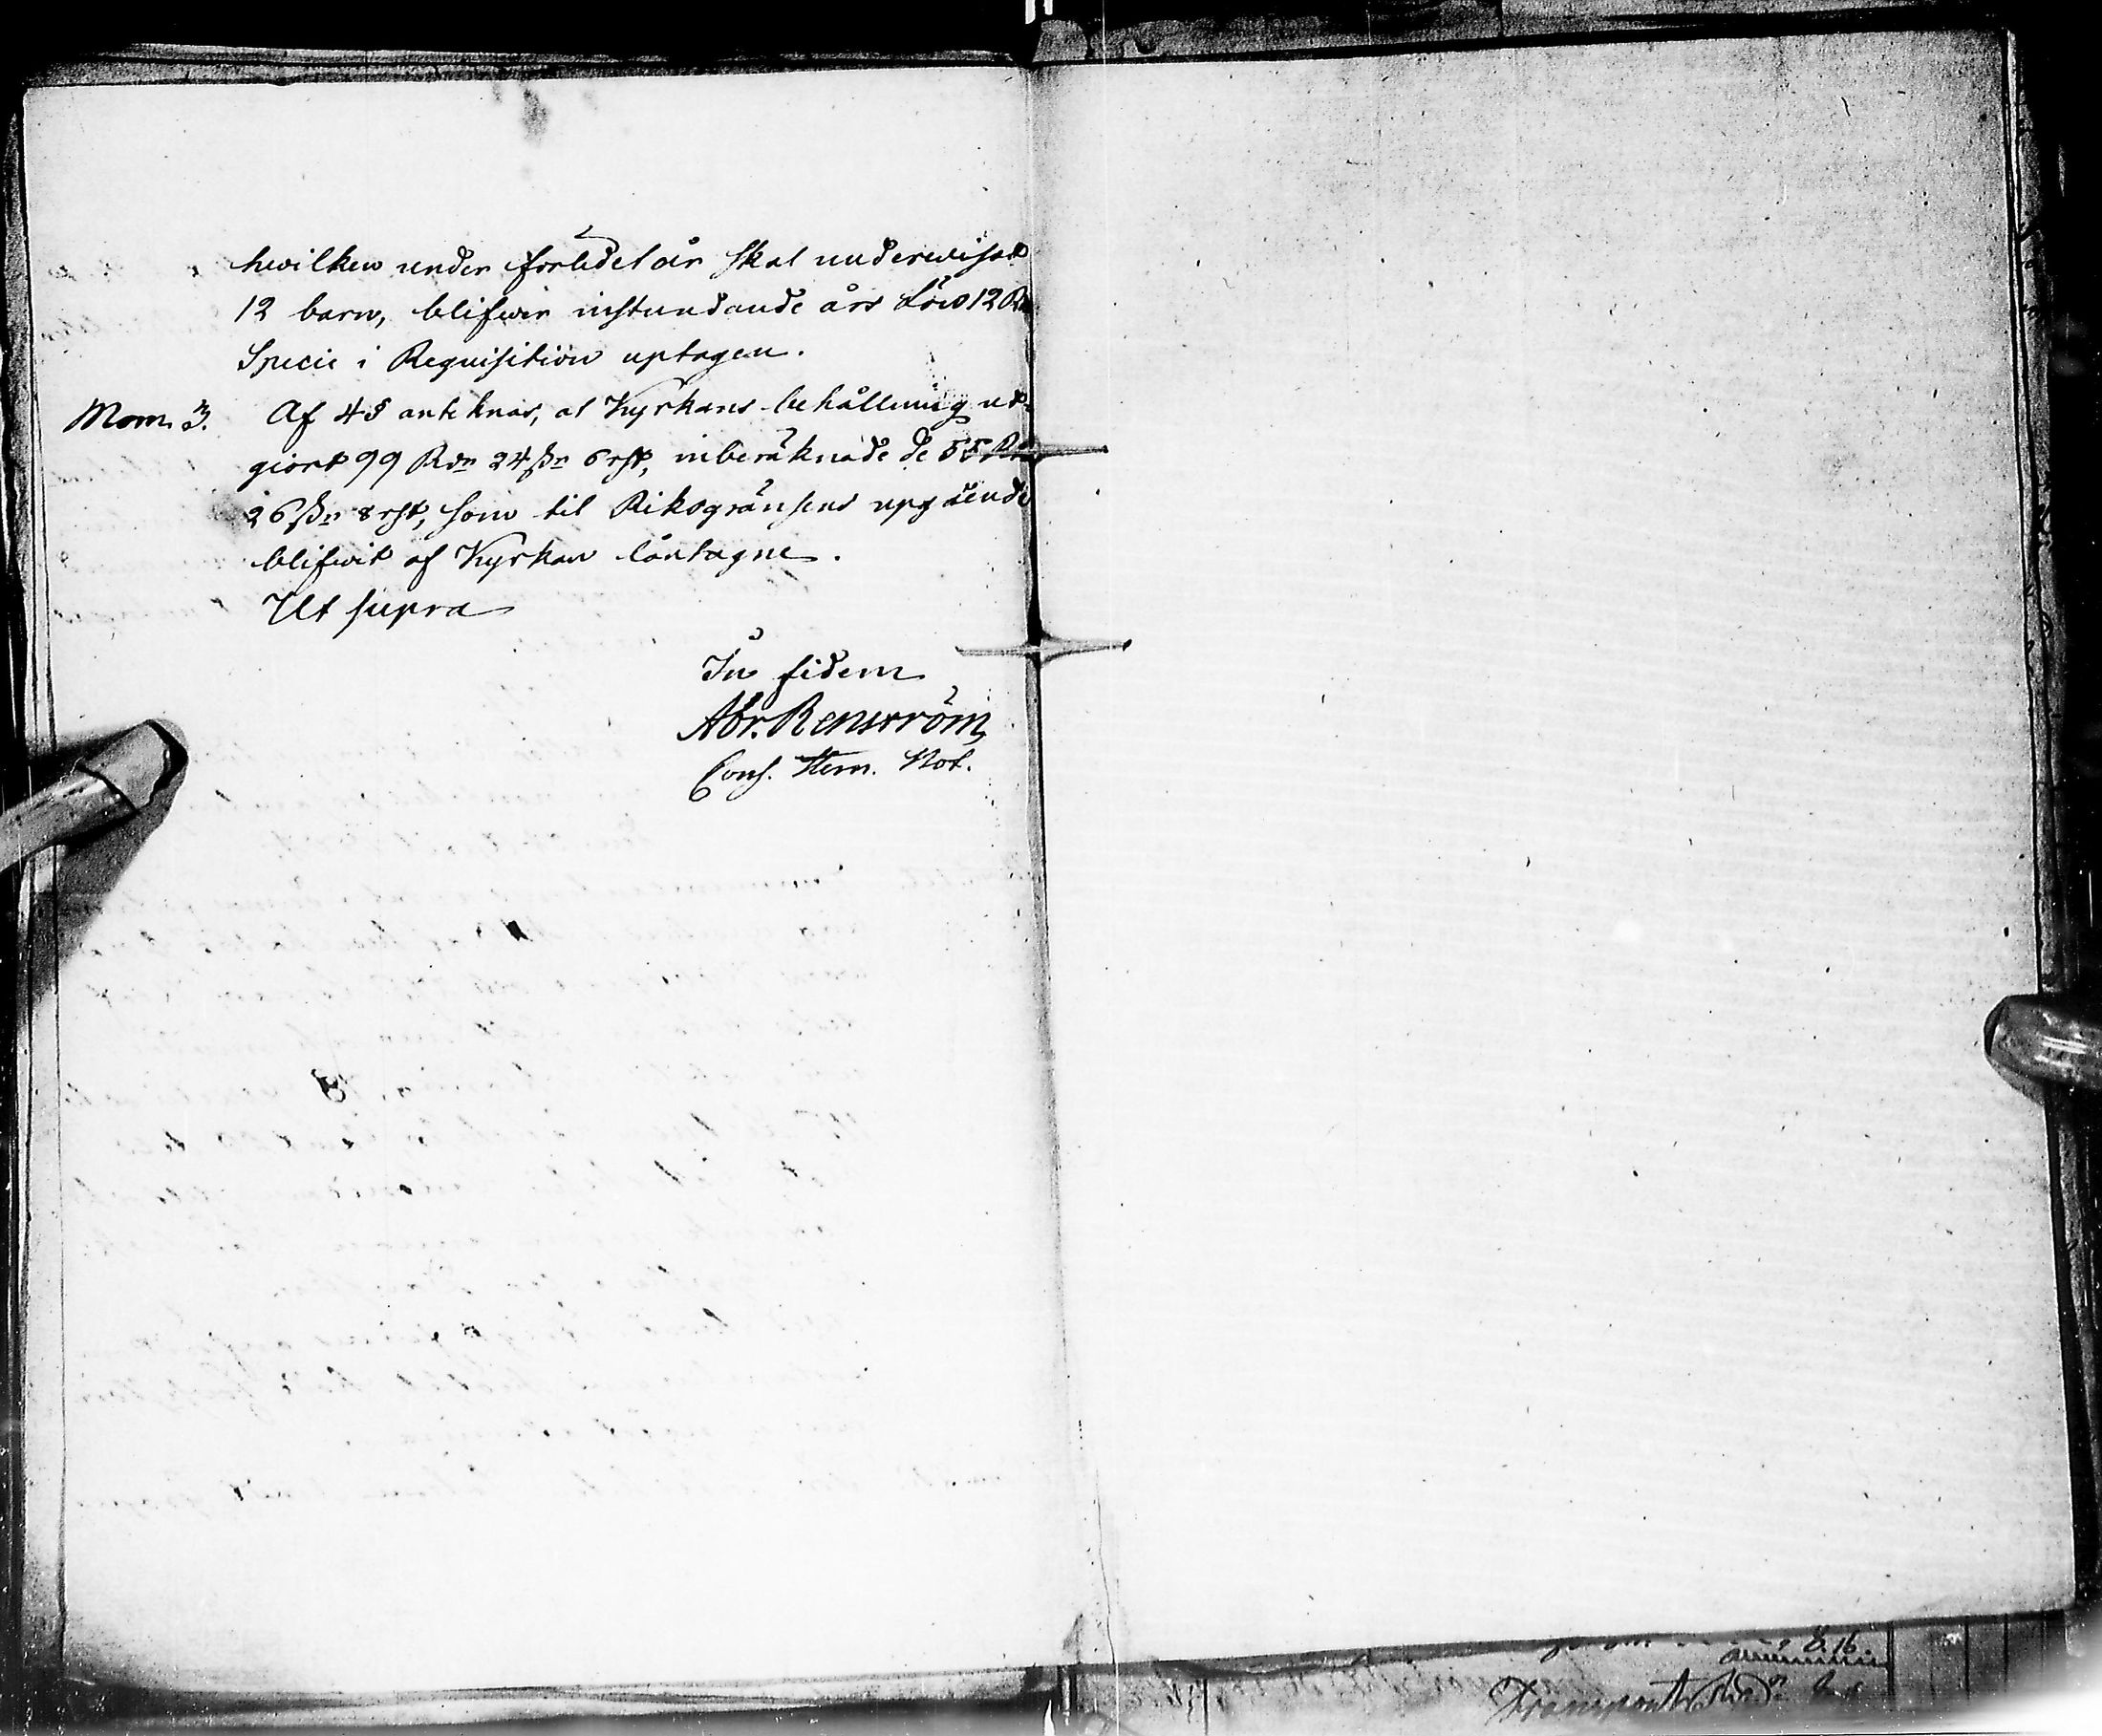 hwilken under förledet år skal underwisat
12 barn, blifwer instundande års Lön 12 Rdr
Specie i Requisition uptagen.
Mom. 3. Af 4 § anteknas, at Kyrkans behållning ut-
giort 99 Rdr 24 ßr 6 rst, inberäknade de 55 Rdr
26 ßr 8 rst, som til Riksgränsens upgående
blifwit af Kyrkan låntagne.
Ut supra
In fidem
Abr. Renström
Cons. Hern. Not.
8.16.
Transport